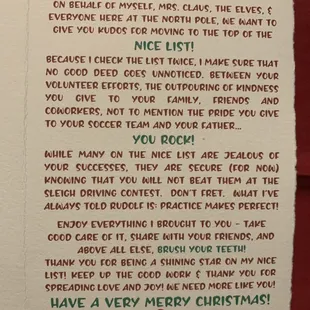 ON BEHALF OF MYSELF, MRS. CLAUS, THE ELVES, &
EVERYONE HERE AT THE NORTH POLE, WE WANT TO
GIVE YOU KUDOS FOR MOVING TO THE TOP OF THE
NICE LIST!
BECAUSE I CHECK THE LIST TWICE, I MAKE SURE THAT
NO GOOD DEED GOES UNNOTICED. BETWEEN YOUR
VOLUNTEER EFFORTS, THE OUTPOURING OF KINDNESS
YOU GIVE TO YOUR FAMILY, FRIENDS AND
COWORKERS, NOT TO MENTION THE PRIDE YOU GIVE
TO YOUR SOCCER TEAM AND YOUR FATHER...
YOU ROCK!
WHILE MANY ON THE NICE LIST ARE JEALOUS OF
YOUR SUCCESSES, THEY ARE SECURE (FOR NOW)
KNOWING THAT YOU WILL NOT BEAT THEM AT THE
SLEIGH DRIVING CONTEST. DON'T FRET. WHAT I'VE
ALWAYS TOLD RUDOLF IS: PRACTICE MAKES PERFECT!
ENJOY EVERYTHING I BROUGHT TO YOU - TAKE
GOOD CARE OF IT, SHARE WITH YOUR FRIENDS, AND
ABOVE ALL ELSE, BRUSH YOUR TEETH!
THANK YOU FOR BEING A SHINING STAR ON MY NICE
LIST! KEEP UP THE GOOD WORK & THANK YOU FOR
SPREADING LOVE AND JOY! WE NEED MORE LIKE YOU!
HAVE A VERY MERRY CHRISTMAS!